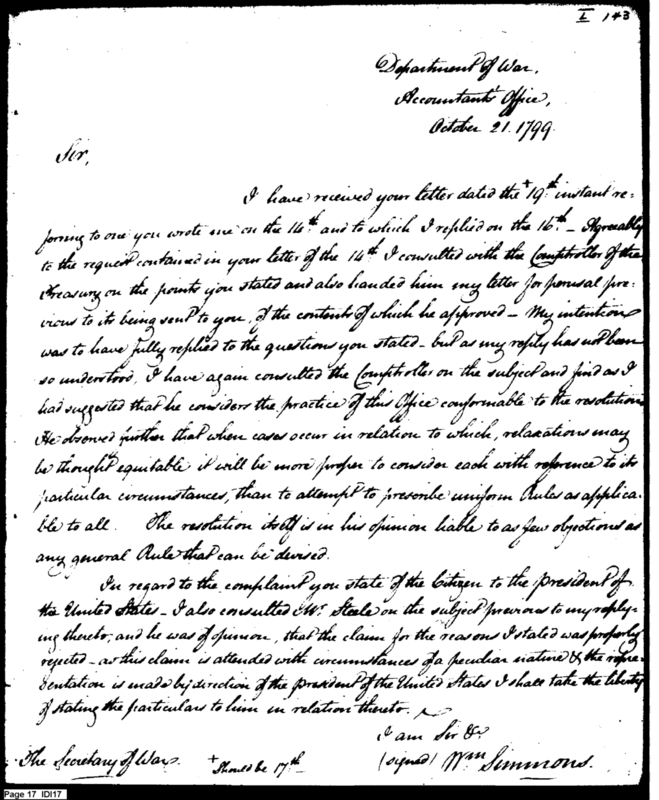 I 143
Department of War,
Accountant's Office,
October 21. 1799.
Sir,
I have received your letter dated the + 19th instant re-
ferring to one you wrote me on the 14th and to which I replied on the 16th - Agreeably
to the request contained in your letter of the 14th I consulted with the Comptroller of the
Treasury on the points you stated and also handed him my letter for perusal pre-
vious to its being sent to you, of the contents of which he approved - My intention
was to have fully replied to the questions you stated - but as my reply has not been
so understood, I have again consulted the Comptroller on the subject and find as I
had suggested that he considers the practice of this Office conformable to the resolution
He observed further that when cases occur in relation to which, relaxations may
be thought equitable it will be more proper to consider each with reference to its
particular circumstances, than to attempt to prescribe uniform Rules as applica-
ble to all. The resolution itself is in his opinion liable to as few objections as
any general Rule that can be devised.
In regard to the complaint you state of the Citizen to the president of
the United States - I also consulted Mr. Steele on the subject previous to my reply-
ing thereto, and he was of opinion, that the claim for the reasons I stated was properly
rejected - as this claim is attended with circumstances of a peculiar nature & the repre-
sentation is made by direction of the President of the United States I shall take the liberty
of stating the particulars to him in relation thereto.
I am Sir &c
(signed) Wm Simmons.
The Secretary of War.
+ Should be 17th
Page 17 IDI17